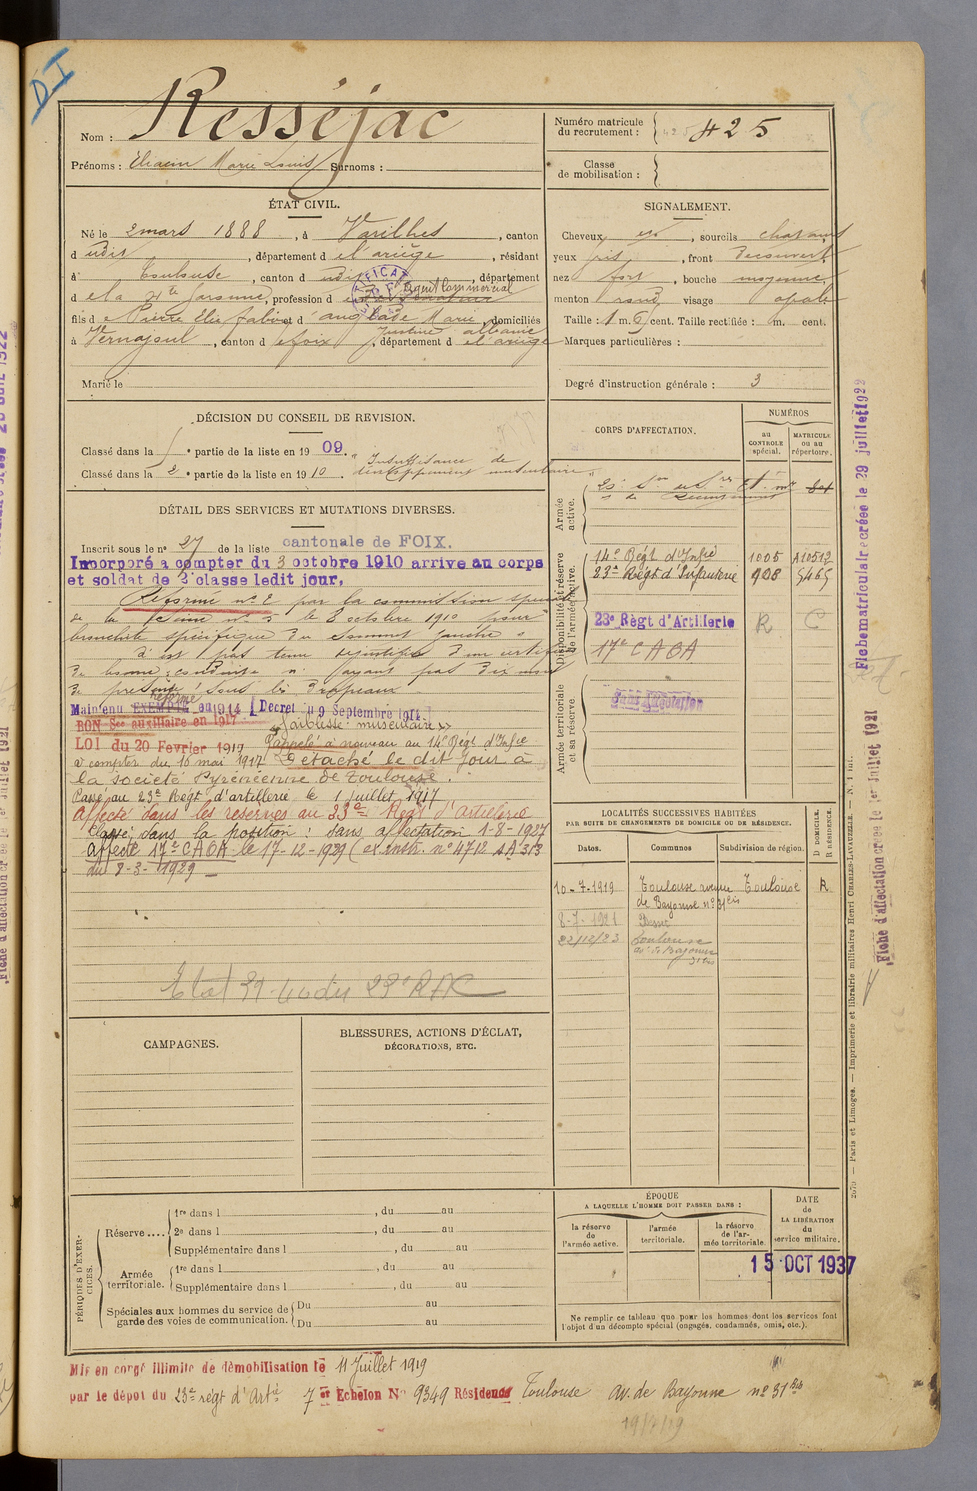 D I
Resséjac
Nom :
Prénoms : Eliacin Marie Louis Surnoms :
Numéro matricule
du recrutement : 425
Classe
de mobilisation :
ÉTAT CIVIL.
Né le 2 mars 1888, à Varilhes, canton
d udit, département d e l'ariège, résidant
à Toulouse, canton d udit, département
d e la Hte Garonne, profession d agent Commercial
fils d e Pierre Elie fabien et d' anglade Marie, domiciliés
Justine albanie
à Vernajoul, canton d e foix, département d e l'ariège
Marié le
SIGNALEMENT.
Cheveux, sourcils chatains
yeux gris, front découvert
nez fort, bouche moyenne
menton rond visage ovale
Taille : 1 m. 6 cent. Taille rectifiée : m. cent.
Marques particulières :
Degré d'instruction générale : 3
DÉCISION DU CONSEIL DE REVISION.
Classé dans la partie de la liste en 19 09.
Classé dans la 2 e partie de la liste en 19 10. " Insuffisance de
développement musculaire "
DÉTAIL DES SERVICES ET MUTATIONS DIVERSES.
Inscrit sous le n° 27 de la liste cantonale de FOIX.
Incorporé a compter du 3 octobre 1910 arrive au corps
et soldat de 2e classe ledit jour,
Réformé n° 2 par la commission spéciale
de la Seine n° 3 le 8 octobre 1910 pour
bronchite spécifique du sommet gauche "
N'est pas tenu de justifier d'un certificat
de bonne conduite n' ayant pas dix mois
de présence sous les drapeaux
réformé
Maintenu EXEMPTÉ en 1914 [Décret du 9 Septembre 1914]
BON Sce auxiliaire en 1917 " faiblesse musculaire "
LOI du 20 Fevrier 1917 Rappelé à nouveau au 14e Régt d'Infie
à compter du 10 mai 1917 Détaché le dit jour à
la société Pyrénéenne de Toulouse.
Passé au 23e Régt d'artillerie le 1 juillet 1917
affecté dans les réserves au 23e Régt d'artillerie
Classé dans la position : sans affectation 1-8-1927
affecté 17e C A O A le 17-12-1929 (ex instr. n° 4712 s A 3/3
du 8-3-1929
Etat 39
CORPS D'AFFECTATION.
NUMÉROS
au
CONTROLE
spécial.
MATRICULE
ou au
répertoire.
Armée
active.
Disponibilité et réserve
de l'armée active.
14e Régt d'Infie 1005 A10512
23e Régt d'Infanterie 908 5465
23e Règt d'Artillerie R C
17e C A O A
Armée territoriale
et sa réserve
Sans affectation
LOCALITÉS SUCCESSIVES HABITÉES
PAR SUITE DE CHANGEMENTS DE DOMICILE OU DE RÉSIDENCE.
Dates. Communes Subdivision de région.
D DOMICILE.
R RÉSIDENCE.
10-7-1919 Toulouse avenue Toulouse R
de Bayonne n° 31 bis
8-7-1921
22/12/23 Toulouse
av. de Bayonne
31 bis
CAMPAGNES.
BLESSURES, ACTIONS D'ÉCLAT,
DÉCORATIONS, ETC.
PÉRIODES D'EXERCICES.
Réserve....
1re dans l , du au
2e dans l , du au
Supplémentaire dans l , du au
Armée
territoriale.
1re dans l , du au
Supplémentaire dans l , du au
Spéciales aux hommes du service de
garde des voies de communication.
Du au
Du au
ÉPOQUE
A LAQUELLE L'HOMME DOIT PASSER DANS :
la réserve
de
l'armée active.
l'armée
territoriale.
la réserve
de l'ar-
mée territoriale.
DATE
de
LA LIBÉRATION
du
service militaire.
15 OCT 1937
Ne remplir ce tableau que pour les hommes dont les services font
l'objet d'un décompte spécial (engagés, condamnés, omis, etc.).
Mis en congé illimité de démobilisation le 11 Juillet 1919
par le dépot du 23e régt d'Artie 7 er Echelon N° 9349 Résidence Toulouse av. de Bayonne n° 31 Bis
19/4/19
Fiche matriculaire créée le 29 juillet 1922
Fiche d'affectation créée le 1er Juillet 1921
Paris et Limoges. — Imprimerie et librairie militaires Henri CHARLES-LAVAUZELLE.